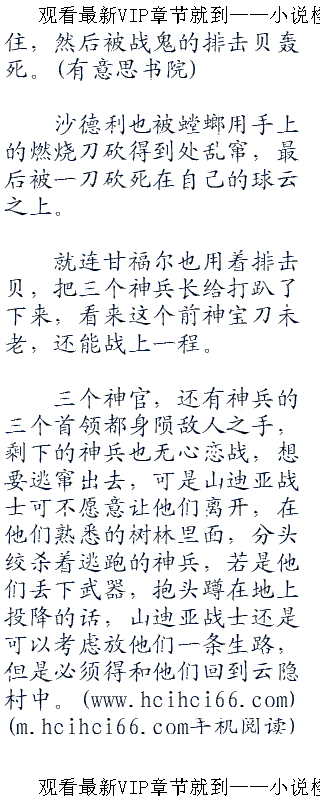 观看最新VIP章节就到——小说
住，然后被战鬼的排击贝轰
死。(有意思书院)
沙德利也被螳螂用手上
的燃烧刀砍得到处乱窜，最
后被一刀砍死在自己的球云
之上。
就连甘福尔也用着排击
贝，把三个神兵长给打趴了
下来，看来这个前神宝刀未
老，还能战上一程。
三个神官，还有神兵的
三个首领都身陨敌人之手，
剩下的神兵也无心恋战，想
要逃窜出去，可是山迪亚战
士可不愿意让他们离开，在
他们熟悉的树林里面，分头
绞杀着逃跑的神兵，若是他
们丢下武器，抱头蹲在地上
投降的话，山迪亚战士还是
可以考虑放他们一条生路，
但是必须得和他们回到云隐
村中。(www.hcihci66.com)
(m.hcihci66.com手机阅读)
观看最新VIP章节就到——小说